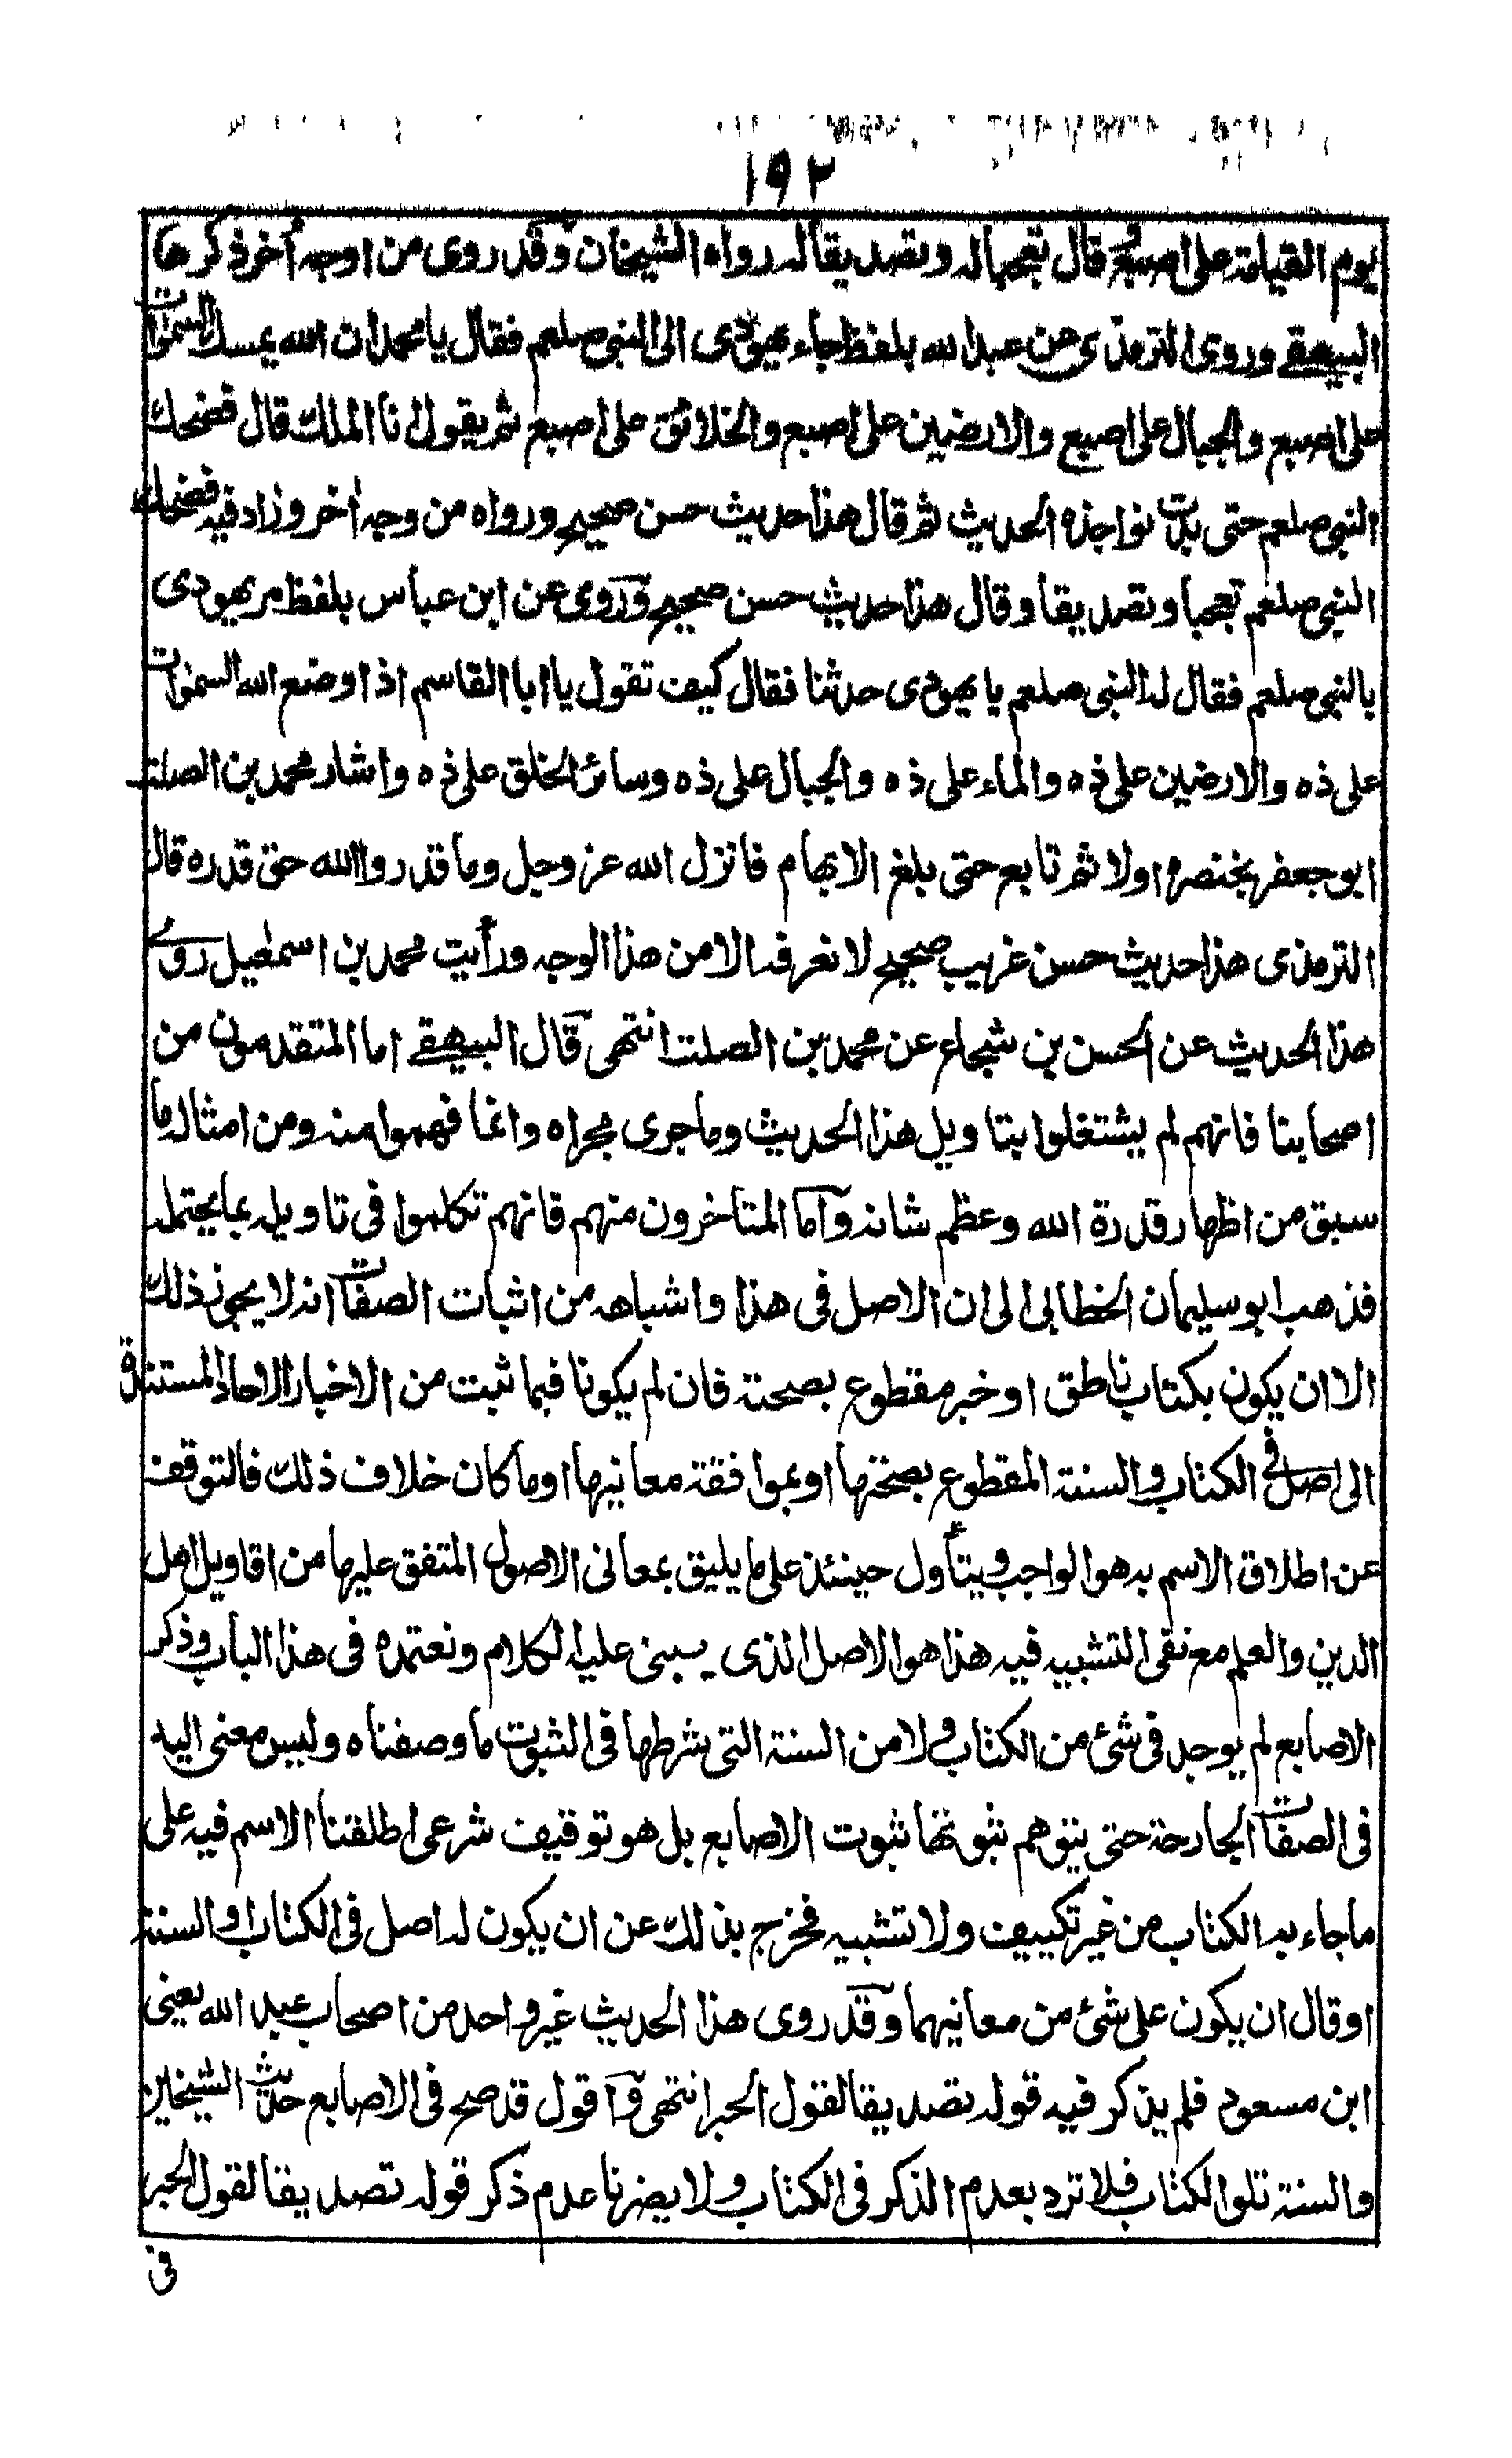 ١٩٢
يوم القيامة على اصبع قال تعجبا له وتصديقا له رواه الشيخان وقد روى من اوجه أخر ذكرها
البيهقى وروى الترمذى عن عبد الله بلفظ جاء يهودى الى النبى صلعم فقال يا محمد ان الله يمسك السموات
على اصبع والجبال على اصبع والارضين على اصبع والخلائق على اصبع ثم يقول انا الملك قال فضحك
النبى صلعم حتى بدت نواجذه الحديث ثم قال هذا حديث حسن صحيح ورواه من وجه أخر وزاد فيه فضحك
النبى صلعم تعجبا وتصديقا وقال هذا حديث حسن صحيح وروى عن ابن عباس بلفظ مر يهودى
بالنبى صلعم فقال له النبى صلعم يا يهودى حدثنا فقال كيف تقول يا ابا القاسم اذا وضع الله السموات
على ذه والارضين على ذه والماء على ذه والجبال على ذه وسائر الخلق على ذه واشار محمد بن الصلت
ابو جعفر بخنصره اولا ثم تابع حتى بلغ الابهام فانزل الله عز وجل وما قدروا الله حق قدره قال
الترمذى هذا حديث حسن غريب صحيح لا نعرفه الا من هذا الوجه ورأيت محمد بن اسمعيل روى
هذا الحديث عن الحسن بن شجاع عن محمد بن الصلت انتهى قال البيهقى اما المتقدمون من
اصحابنا فانهم لم يشتغلوا بتاويل هذا الحديث وما جرى مجراه وانما فهموا منه ومن امثاله ما
سبق من اظهار قدرة الله وعظم شانه واما المتاخرون منهم فانهم تكلموا فى تاويله بما يحتمله
فذهب ابو سليمان الخطابى الى ان الاصل فى هذا واشباهه من اثبات الصفات انه لا يجوز ذلك
الا ان يكون بكتاب ناطق او خبر مقطوع بصحته فان لم يكونا فيما ثبت من الاخبار الاحاد المستندة
الى اصل فى الكتاب والسنة المقطوع بصحتها او بموافقة معانيها او ما كان خلاف ذلك فالتوقف
عن اطلاق الاسم به هو الواجب ويتأول حينئذ على ما يليق بمعانى الاصول المتفق عليها من اقاويل اهل
الدين والعلم مع نفى التشبيه فيه هذا هو الاصل الذى يبنى عليه الكلام ونعتمده فى هذا الباب وذكر
الاصابع لم يوجد فى شئ من الكتاب ولا من السنة التى شرطها فى الثبوت ما وصفناه وليس معنى اليد
فى الصفات الجارحة حتى يتوهم ثبوتها ثبوت الاصابع بل هو توقيف شرعى اطلقنا الاسم فيه على
ما جاء به الكتاب من غير تكييف ولا تشبيه فخرج بذلك عن ان يكون له اصل فى الكتاب والسنة
او قال ان يكون على شئ من معانيهما وقد روى هذا الحديث غير واحد من اصحاب عبد الله يعنى
ابن مسعود فلم يذكر فيه قوله تصديقا لقول الحبر انتهى واقول قد صح فى الاصابع حديث الشيخين
والسنة تلو الكتاب فلا ترد بعدم الذكر فى الكتاب ولا يضرنا عدم ذكر قوله تصديقا لقول الحبر
فى